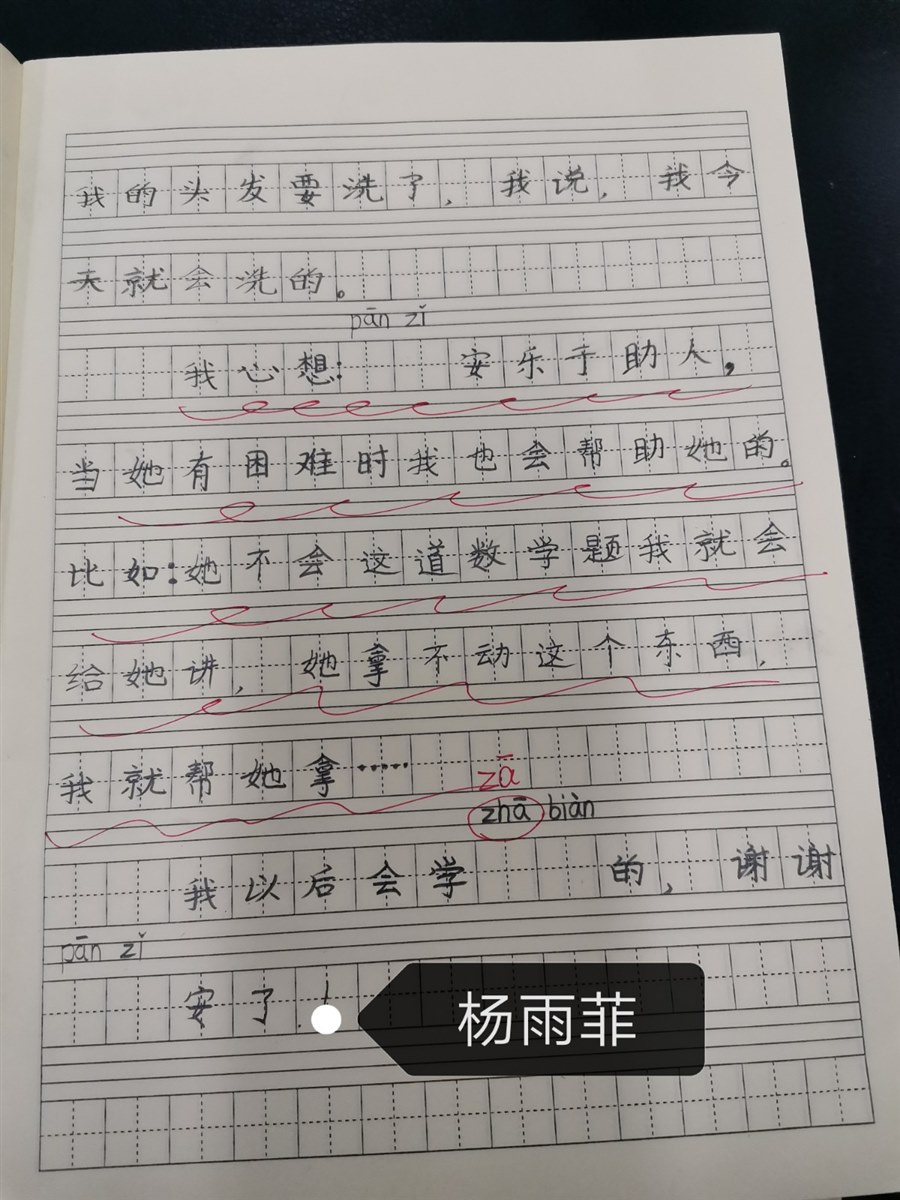 我的头发要洗了，我说，我今
天就会洗的。
pān zǐ
我心想：安乐于助人，
当她有困难时我也会帮助她的。
比如：她不会这道数学题我就会
给她讲，她拿不动这个东西，
我就帮她拿……
zā
zhā biàn
我以后会学的，谢谢
pān zǐ
安了！
杨雨菲